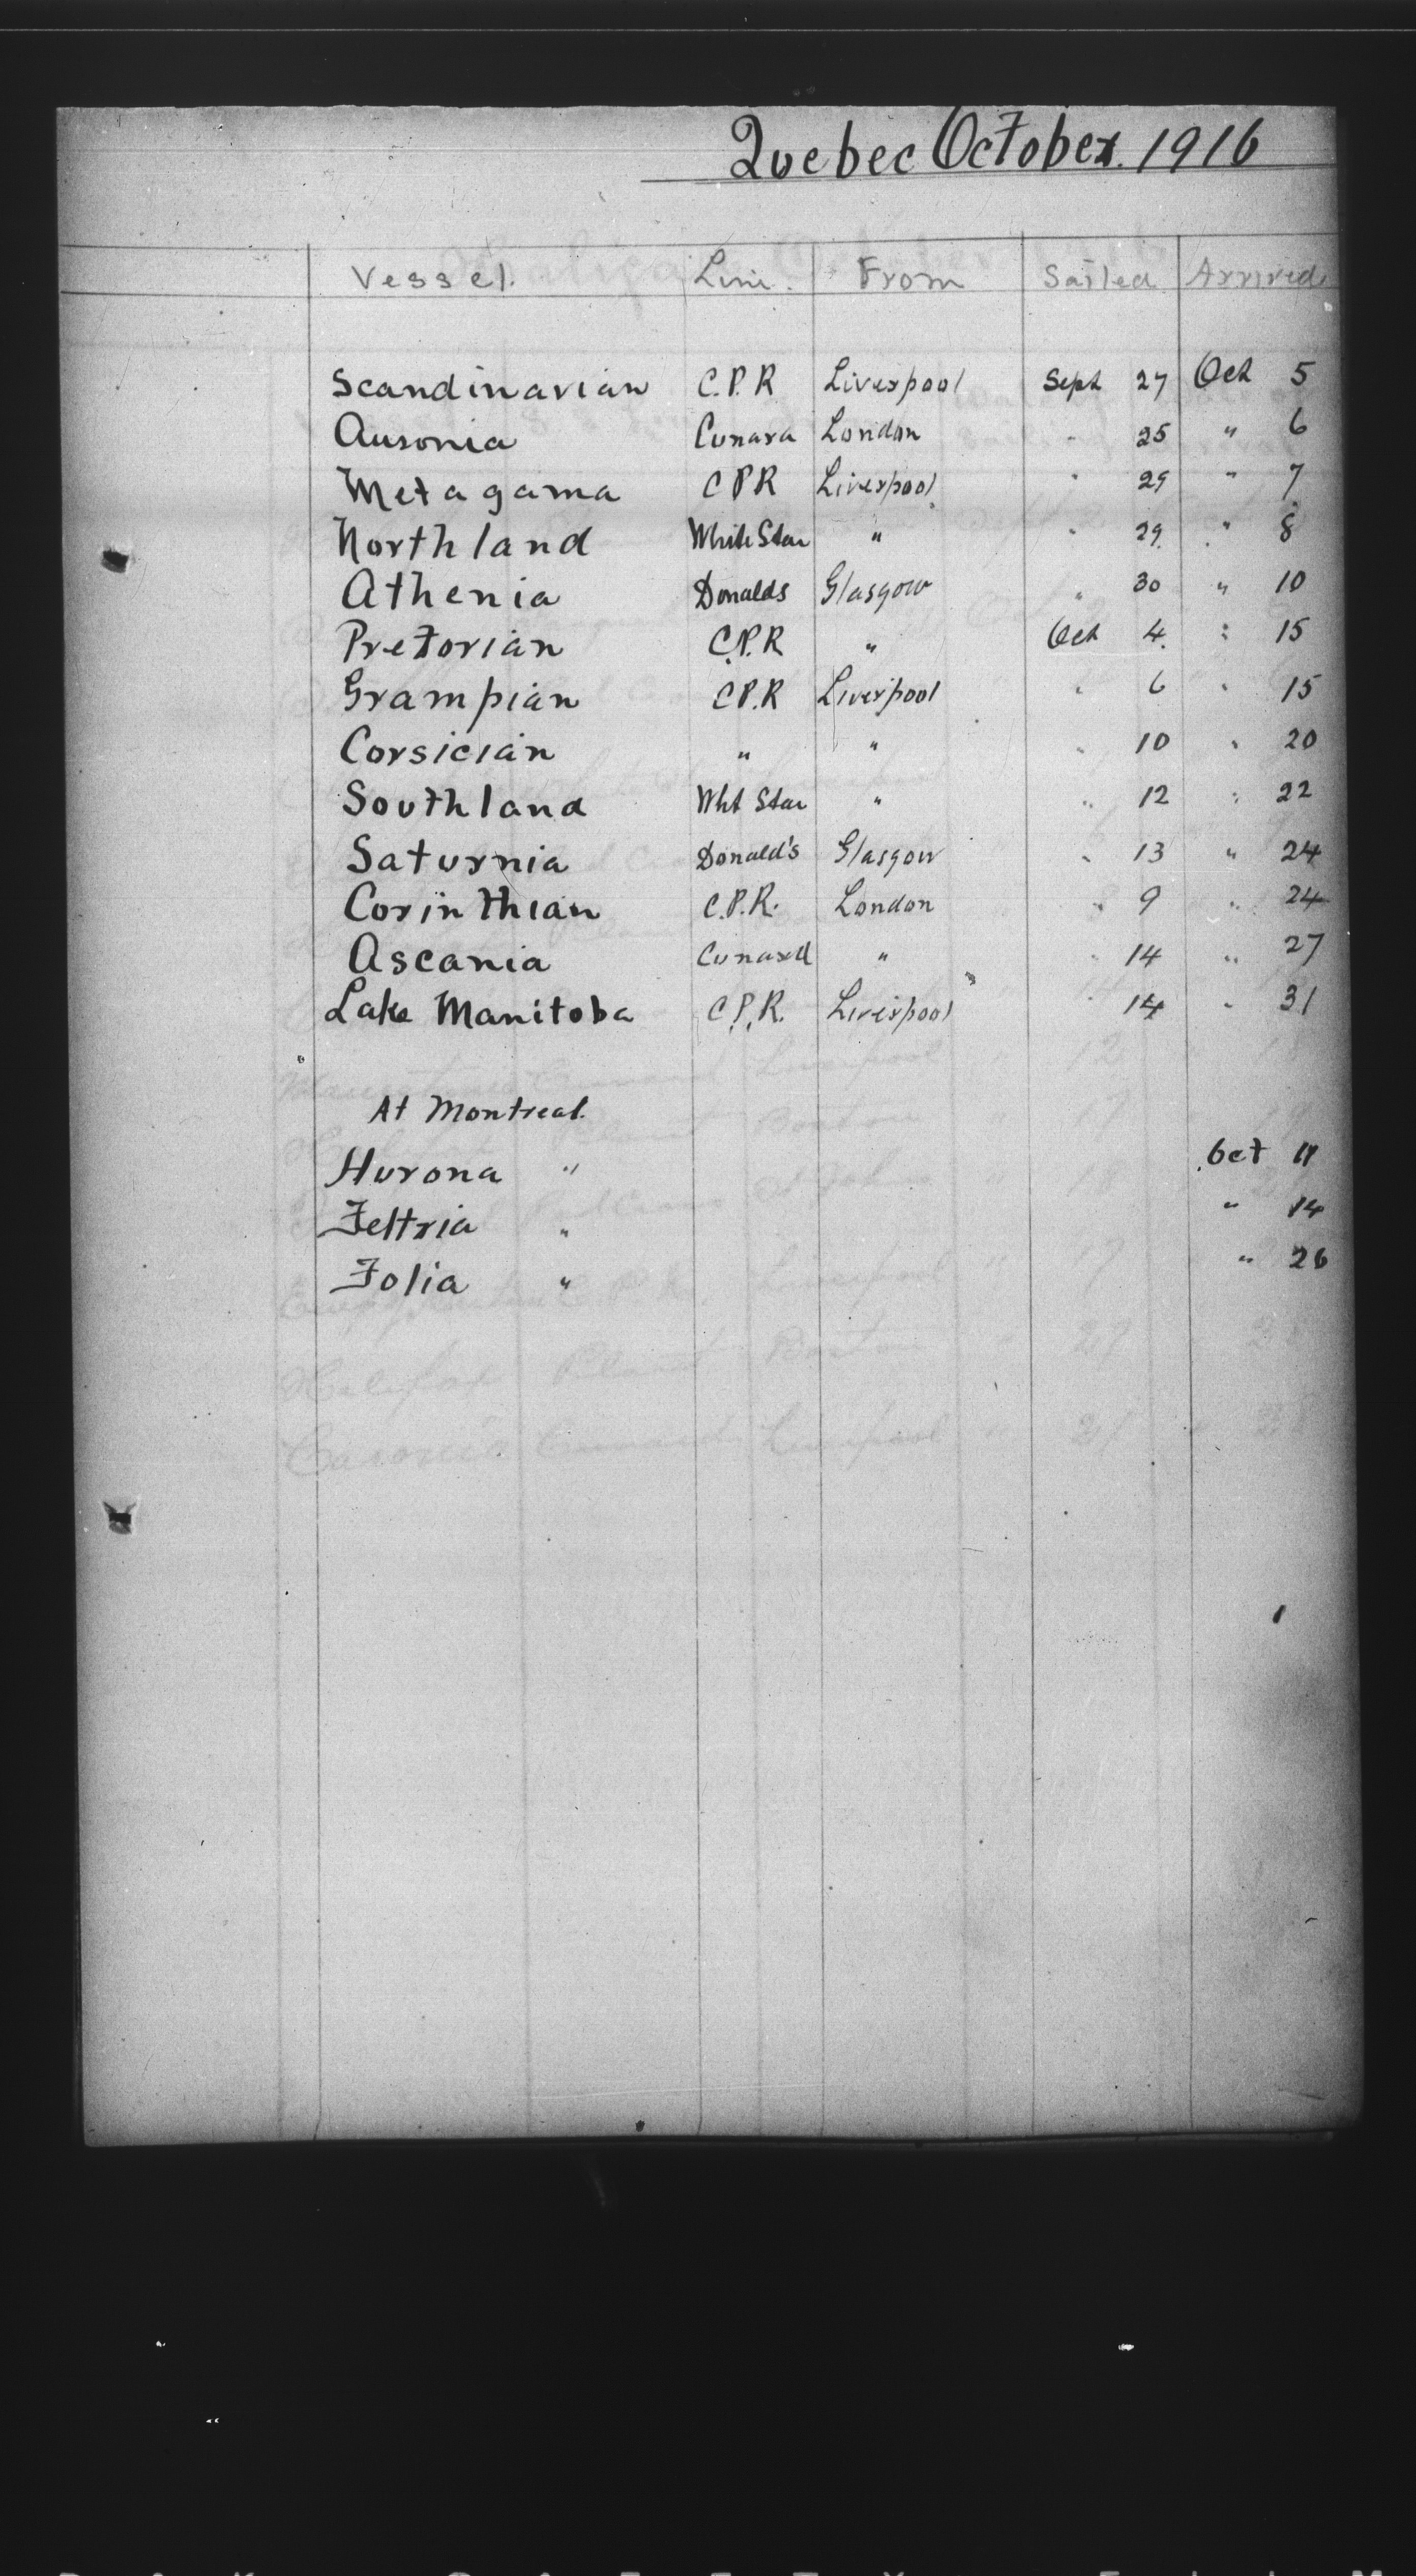 Quebec October. 1916
Vessel. Line. From Sailed Arrived
Scandinavian C.P.R Liverpool Sept 27 Oct 5
Ausonia Cunard London " 25 " 6
Metagama C P R Liverpool " 29 " 7
Northland White Star " " 29. " 8
Athenia Donalds Glasgow " 30 " 10
Pretorian C.P.R " Oct 4. " 15
Grampian C P.R Liverpool " 6 " 15
Corsician " " " 10 " 20
Southland Wht Star " " 12 " 22
Saturnia Donald's Glasgow " 13 " 24
Corinthian C.P.R. London " 9 " 24
Ascania Cunard " " 14 " 27
Lake Manitoba C.P.R. Liverpool " 14 " 31
At Montreal.
Hurona " Oct 11
Feltria " " 14
Folia " " 26